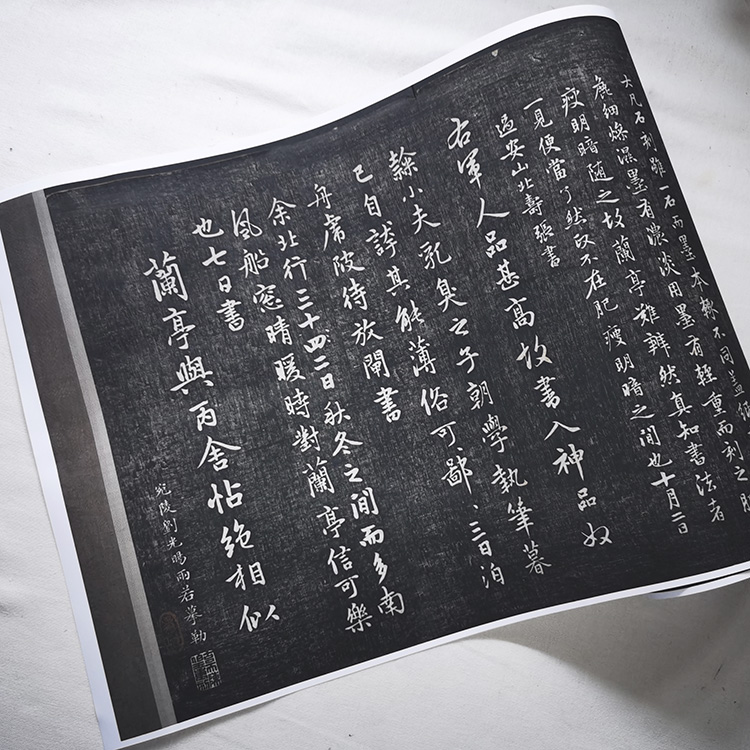 大凡石刻雖一石而墨本輒不同盖紙
麄細燥濕墨有濃淡用墨有輕重而刻之肥
瘦明暗随之故蘭亭難辨然真知書法者
一見便當了然政不在肥瘦明暗之間也十月二日
過安山北壽張書
右軍人品甚高故書入神品奴
隸小夫乳臭之子朝學執筆暮
已自誇其能薄俗可鄙〻三日泊
舟虎陂待放閘書
余北行三十四二日秋冬之間而多南
風船窓晴暖時對蘭亭信可樂
也七日書
蘭亭與丙舍帖絶相似
宛陵劉光暘雨若摹勒